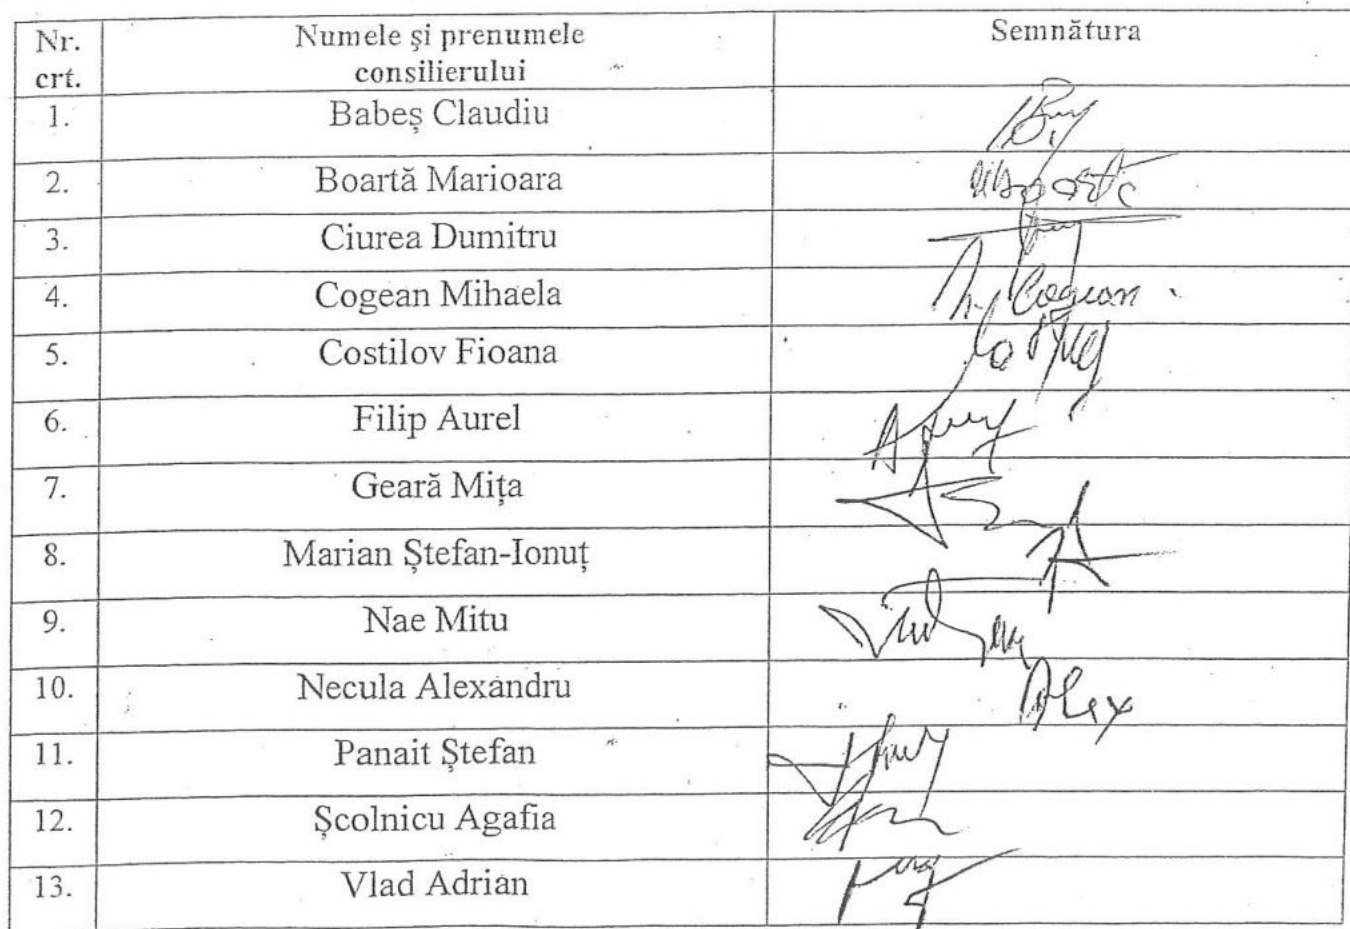 Nr. crt. Numele și prenumele consilierului Semnătura
1. Babeș Claudiu
2. Boartă Marioara
3. Ciurea Dumitru
4. Cogean Mihaela Cogean
5. Costilov Fioana
6. Filip Aurel
7. Geară Mița
8. Marian Ștefan-Ionuț
9. Nae Mitu
10. Necula Alexandru Alex
11. Panait Ștefan
12. Școlnicu Agafia
13. Vlad Adrian